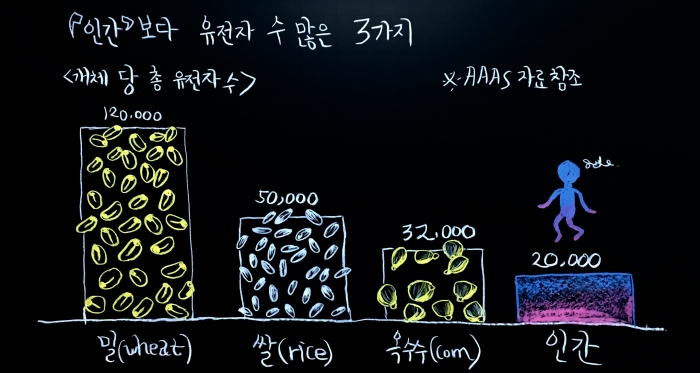 『인간』보다 유전자 수 많은 3가지
<개체 당 총 유전자 수>
※ AAAS 자료 참조
120.000
50,000
32,000
20.000
밀(wheat)
쌀(rice)
옥수수(corn)
인간